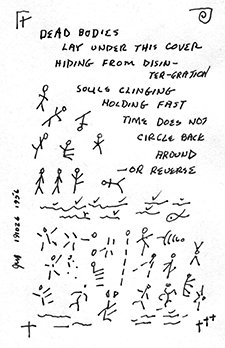 DEAD BODIES
LAY UNDER THIS COVER
HIDING FROM DISIN-
TER-GRATION
SOULS CLINGING
HOLDING FAST
TIME DOES NOT
CIRCLE BACK
AROUND
—OR REVERSE